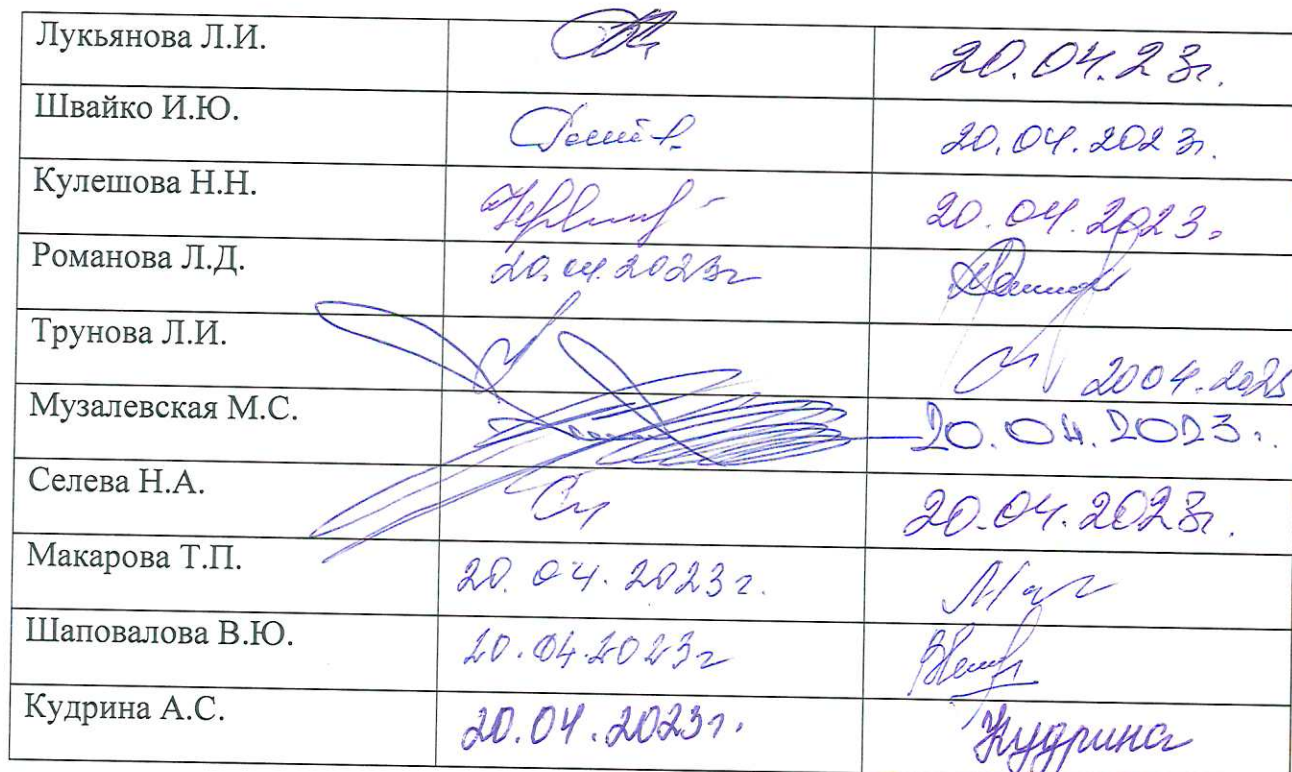 Лукьянова Л.И. 20.04.23г.
Швайко И.Ю. 20.04.2023г.
Кулешова Н.Н. 20.04.2023г
Романова Л.Д. 20.04.2023г
Трунова Л.И. 2004.2023
Музалевская М.С. 20.04.2023г.
Селева Н.А. 20.04.2023г.
Макарова Т.П. 20.04.2023г.
Шаповалова В.Ю. 20.04.2023г
Кудрина А.С. 20.04.2023г. Кудрина